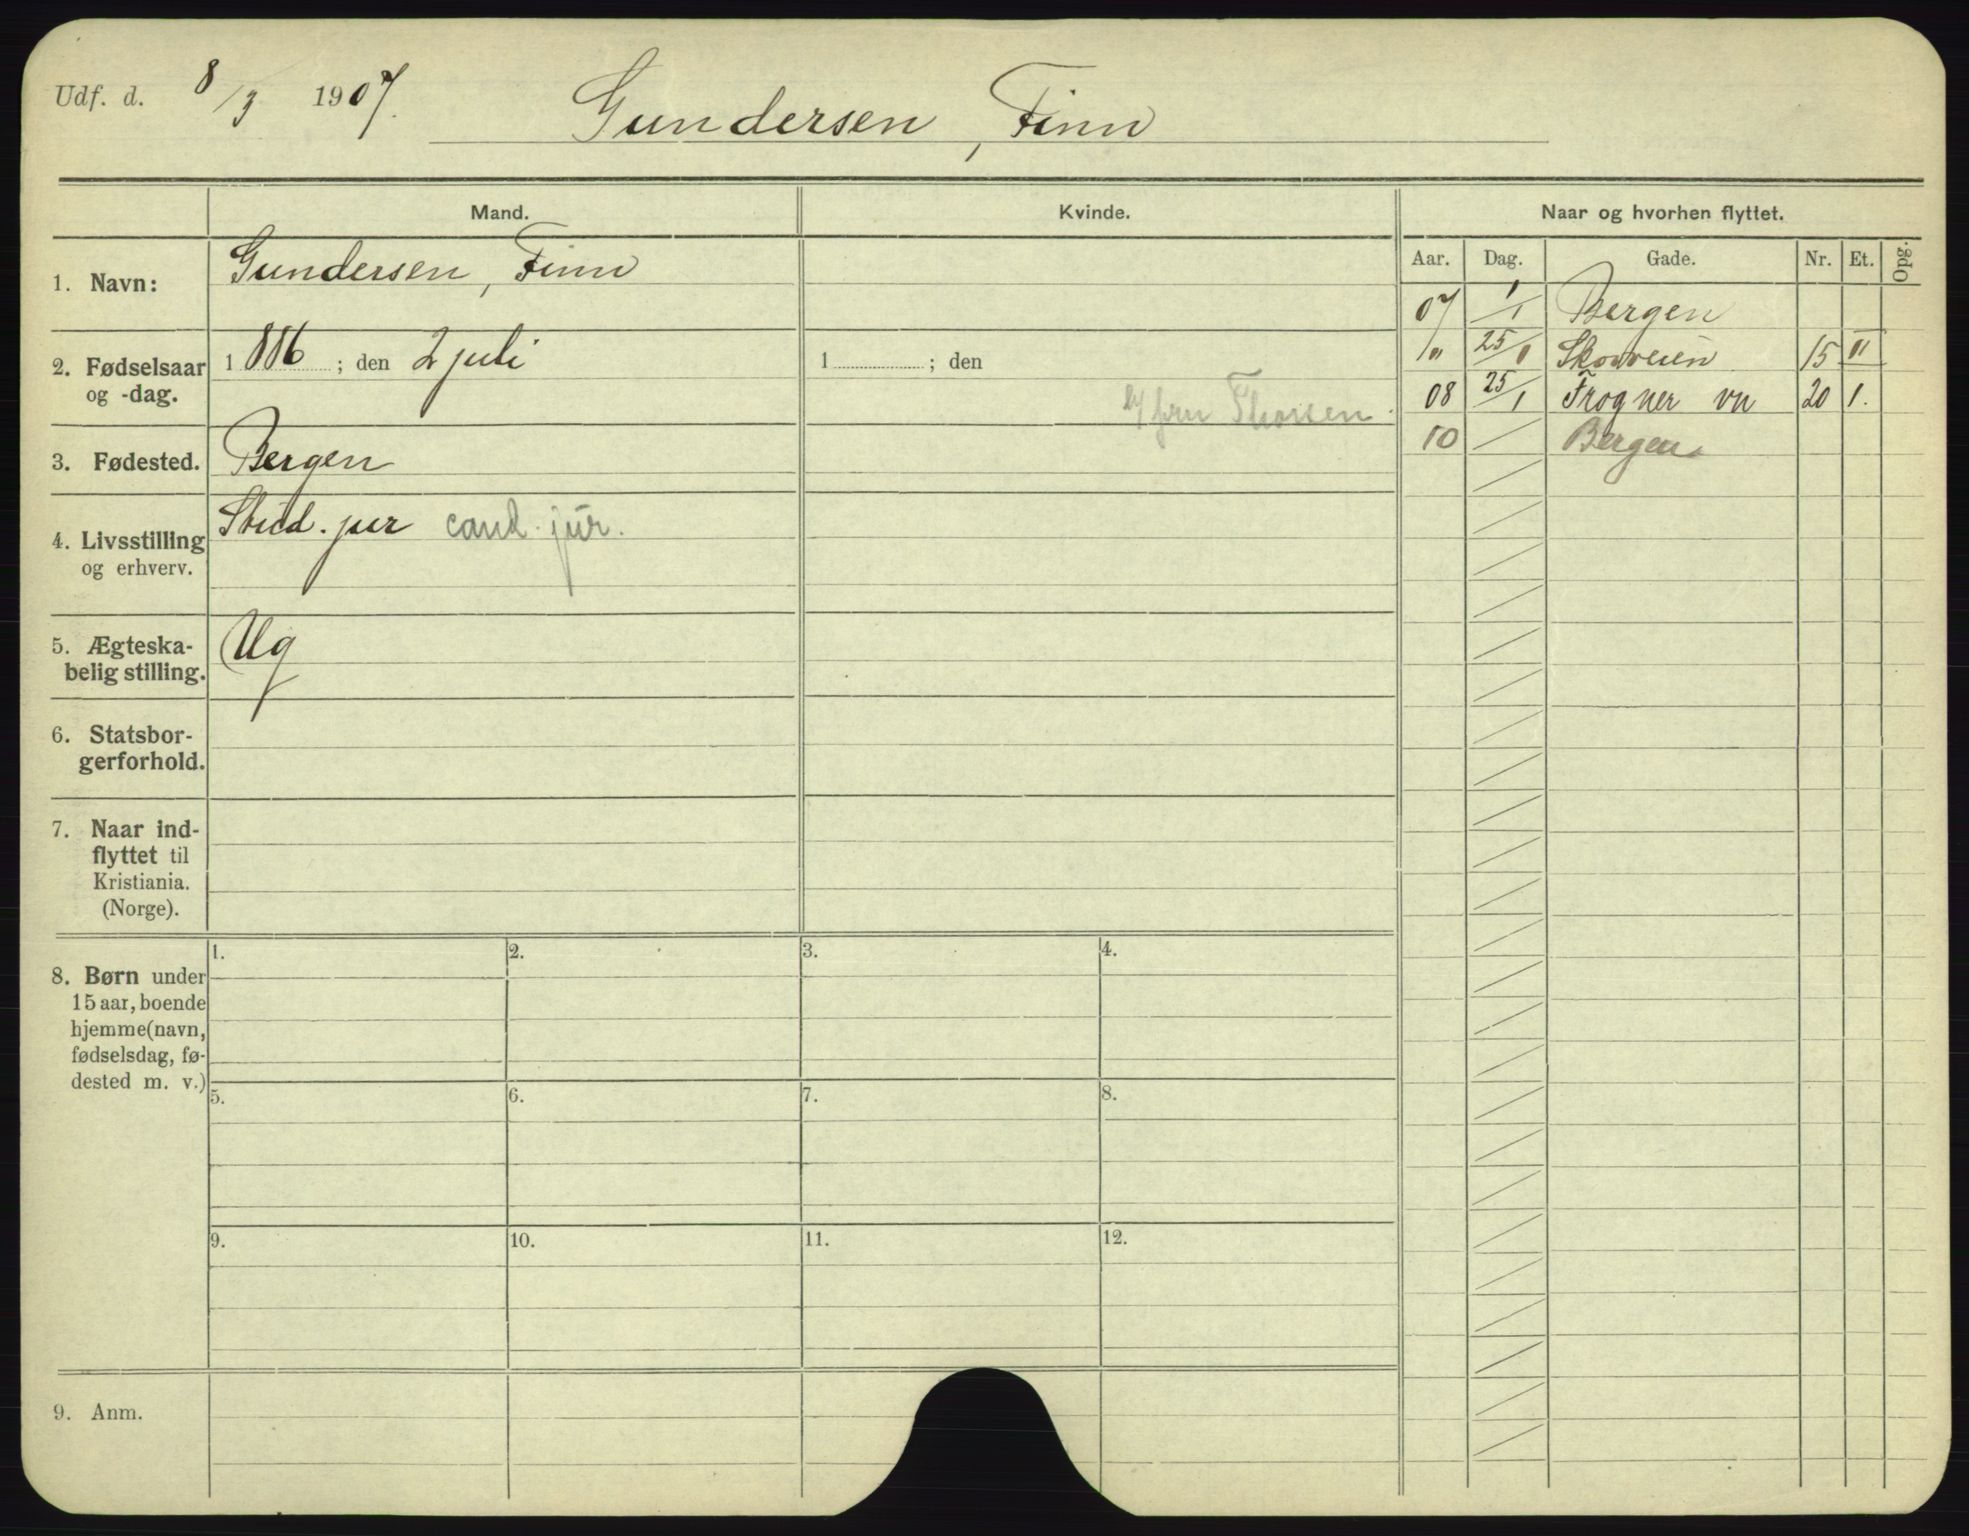 Udf. d. 8/3 1907.
Gundersen, Finn
Mand.
Kvinde.
Naar og hvorhen flyttet.
Aar. Dag. Gade. Nr. Et. Opg.
1. Navn:
Gundersen, Finn
2. Fødselsaar
og -dag.
1886 ; den 2 juli
1 ; den
fru Thorsen.
3. Fødested.
Bergen
4. Livsstilling
og erhverv.
Stud. jur cand. jur.
5. Ægteska-
belig stilling.
Ug
6. Statsbor-
gerforhold.
7. Naar ind-
flyttet til
Kristiania.
(Norge).
8. Børn under
15 aar, boende
hjemme (navn,
fødselsdag, fø-
dested m. v.)
1. 2. 3. 4.
5. 6. 7. 8.
9. 10. 11. 12.
9. Anm.
07 1/1 Bergen
" 25/1 Skovveien 15 II
08 25/1 Frogner vn 20 1.
10 Bergen